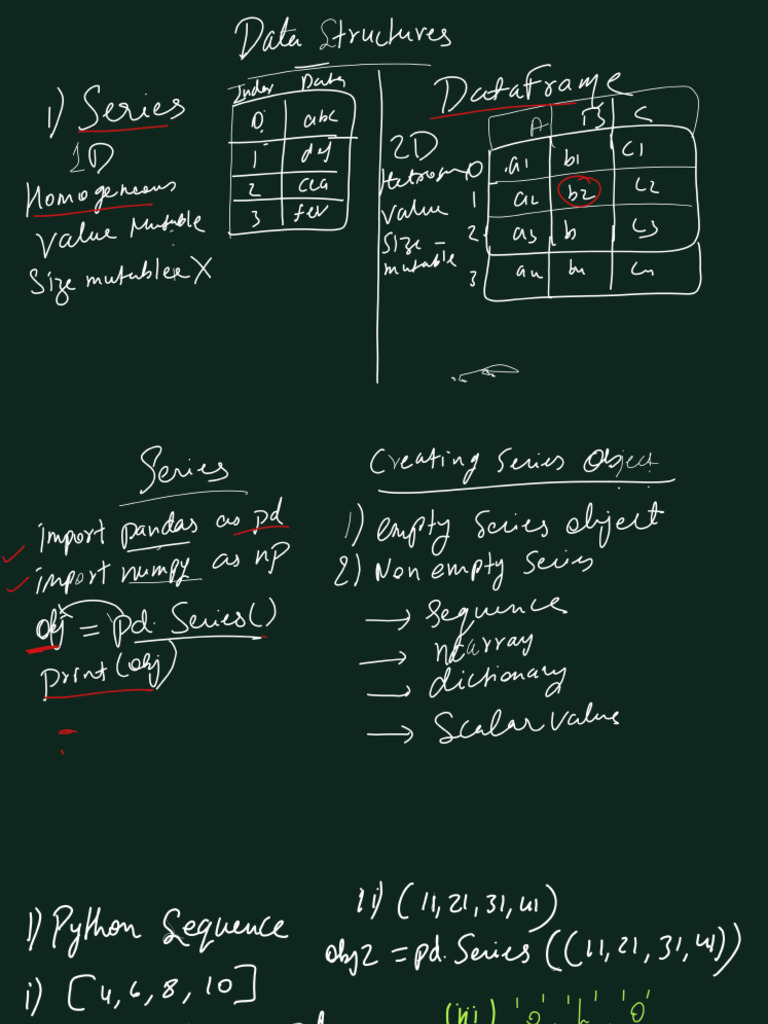 Data Structures
1) Series
1D
Homogeneous
Value Mutable
Size mutable X
Index Data
0 abc
1 def
2
3 fev
DataFrame
2D
Value
Size -
mutable
A B C
0 a1 b1 c1
1 a2 b2 c2
2 a3 b c3
3
Series
import pandas as pd
import numpy as np
obj = pd. Series()
print(obj)
Creating Series Object
1) empty Series object
2) Non empty Series
→ Sequence
→
→ dictionary
→ Scalar value
1) Python Sequence
i) [4, 6, 8, 10]
ii) (11, 21, 31, 41)
obj2 = pd. Series((11, 21, 31, 41))
(iii)